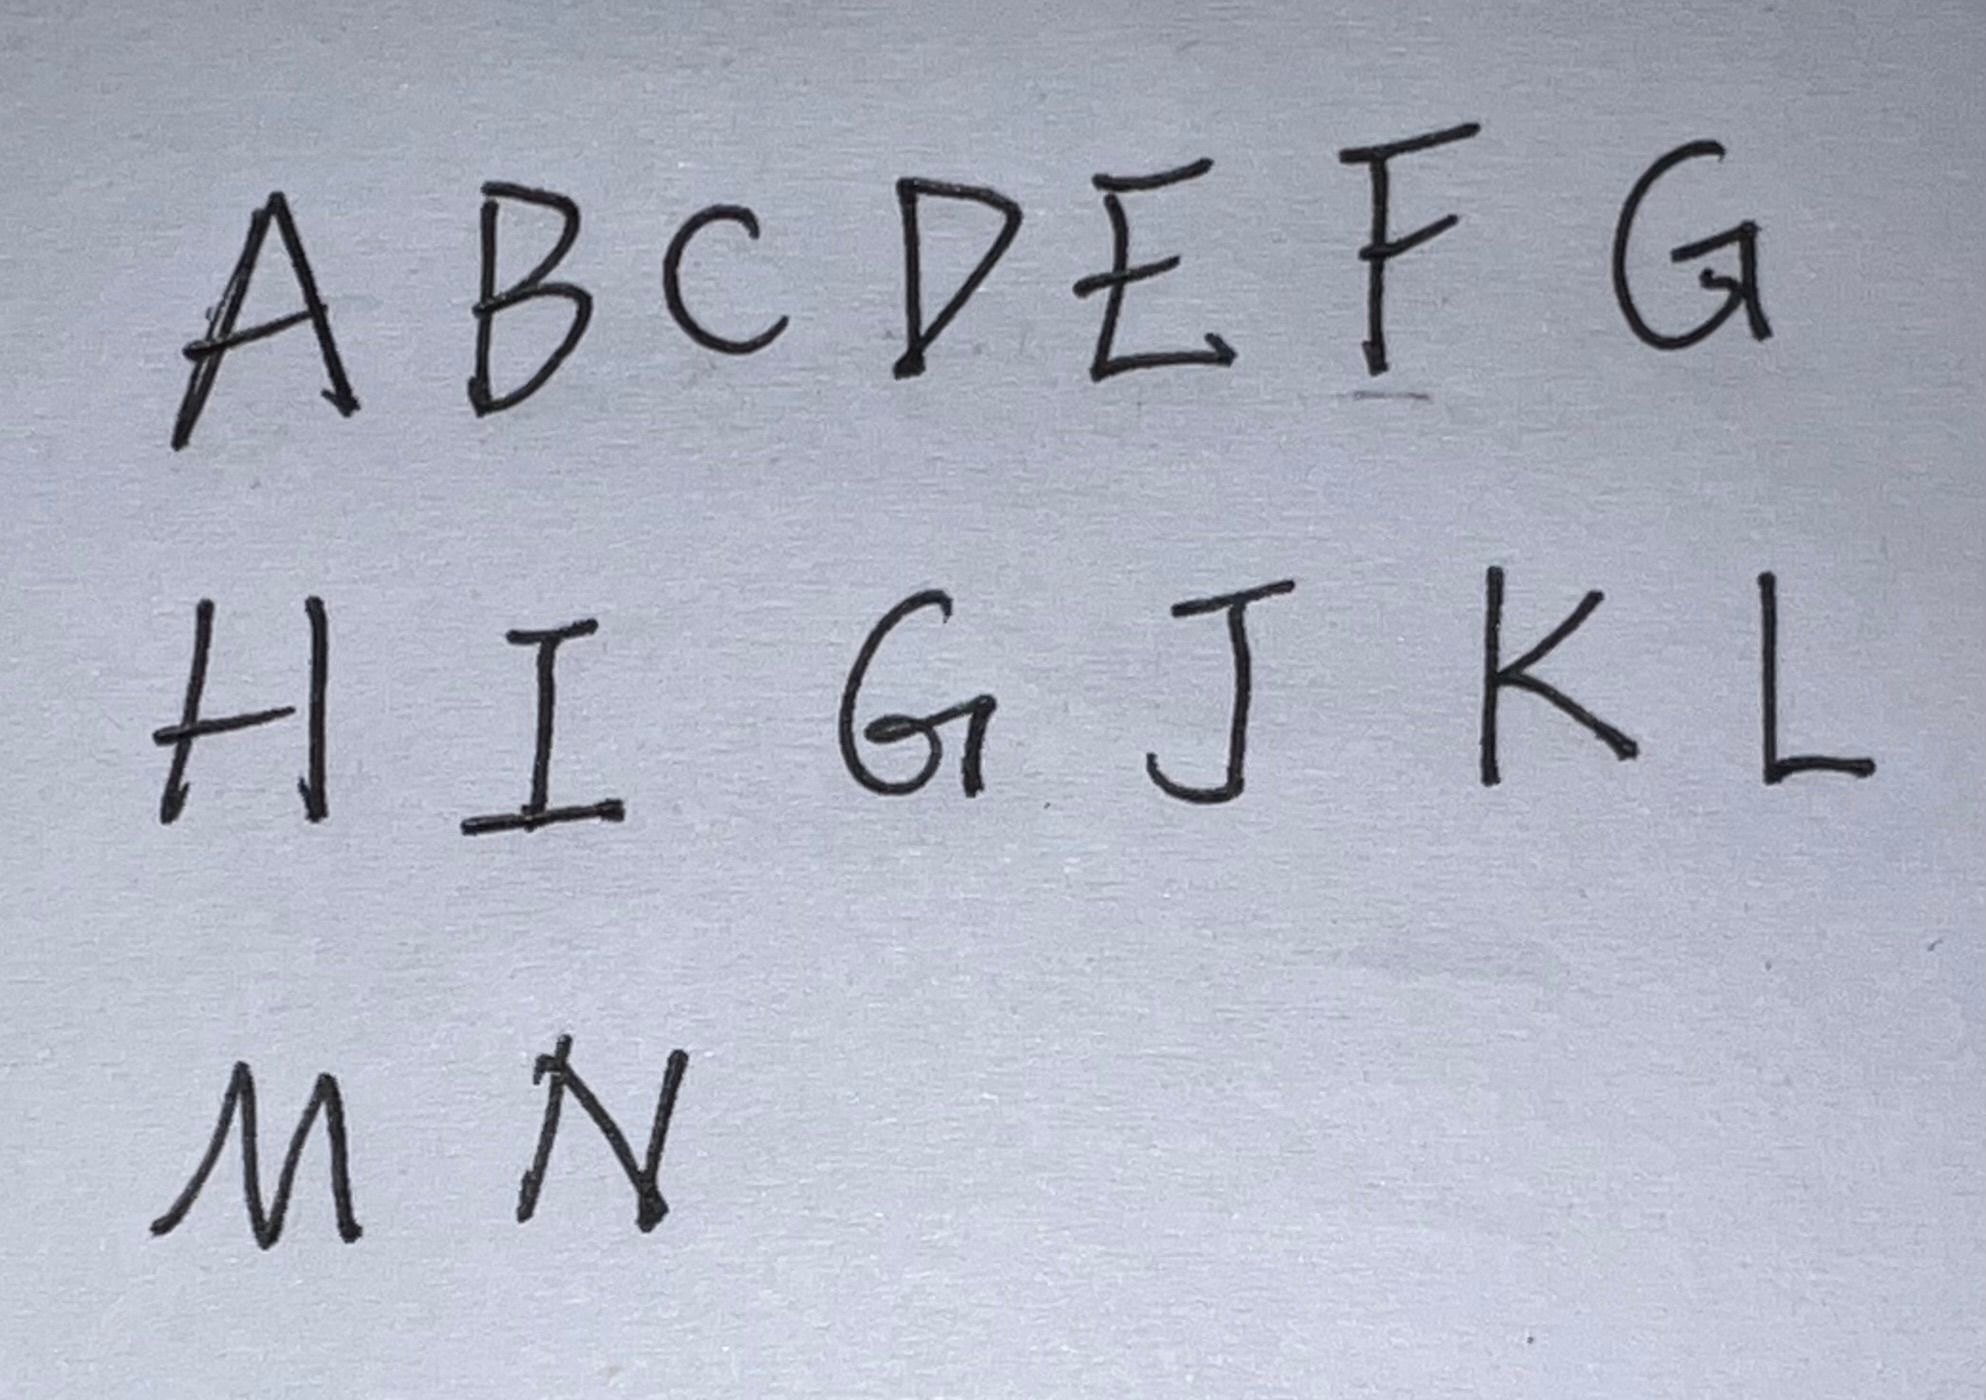 A B C D E F G
H I G J K L
M N